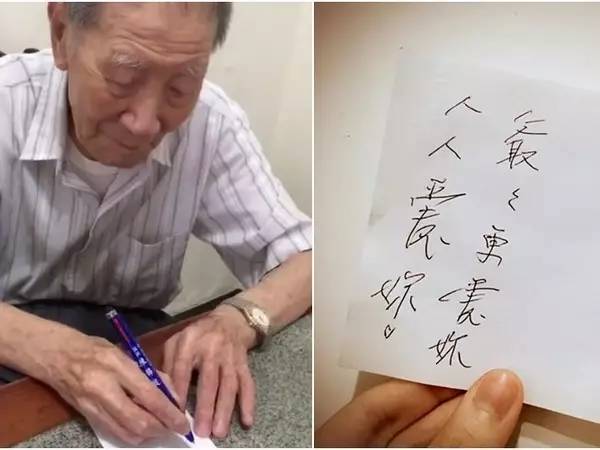 人人愛妳!♡
爺々更愛妳